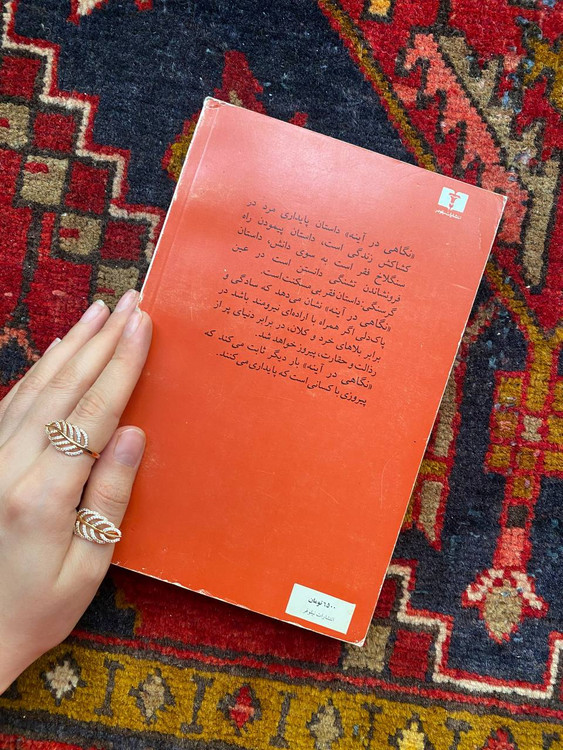 «نگاهی در آینه» داستان پایداری مرد در
کشاکش زندگی است، داستان پیمودن راه
سنگلاخ فقر است به سوی دانش، داستان
فرونشاندن تشنگی دانستن است در عین
گرسنگی. داستان فقر بی‌مسکنت است.
«نگاهی در آینه» نشان می‌دهد که سادگی و
پاک‌دلی اگر همراه با اراده‌ای نیرومند باشد در
برابر بلاهای خرد و کلان، در برابر دنیای پر از
رذالت و حقارت، پیروز خواهد شد.
«نگاهی در آینه» بار دیگر ثابت می‌کند که
پیروزی با کسانی است که پایداری می‌کنند.
۶۵۰۰ تومان
انتشارات نیلوفر